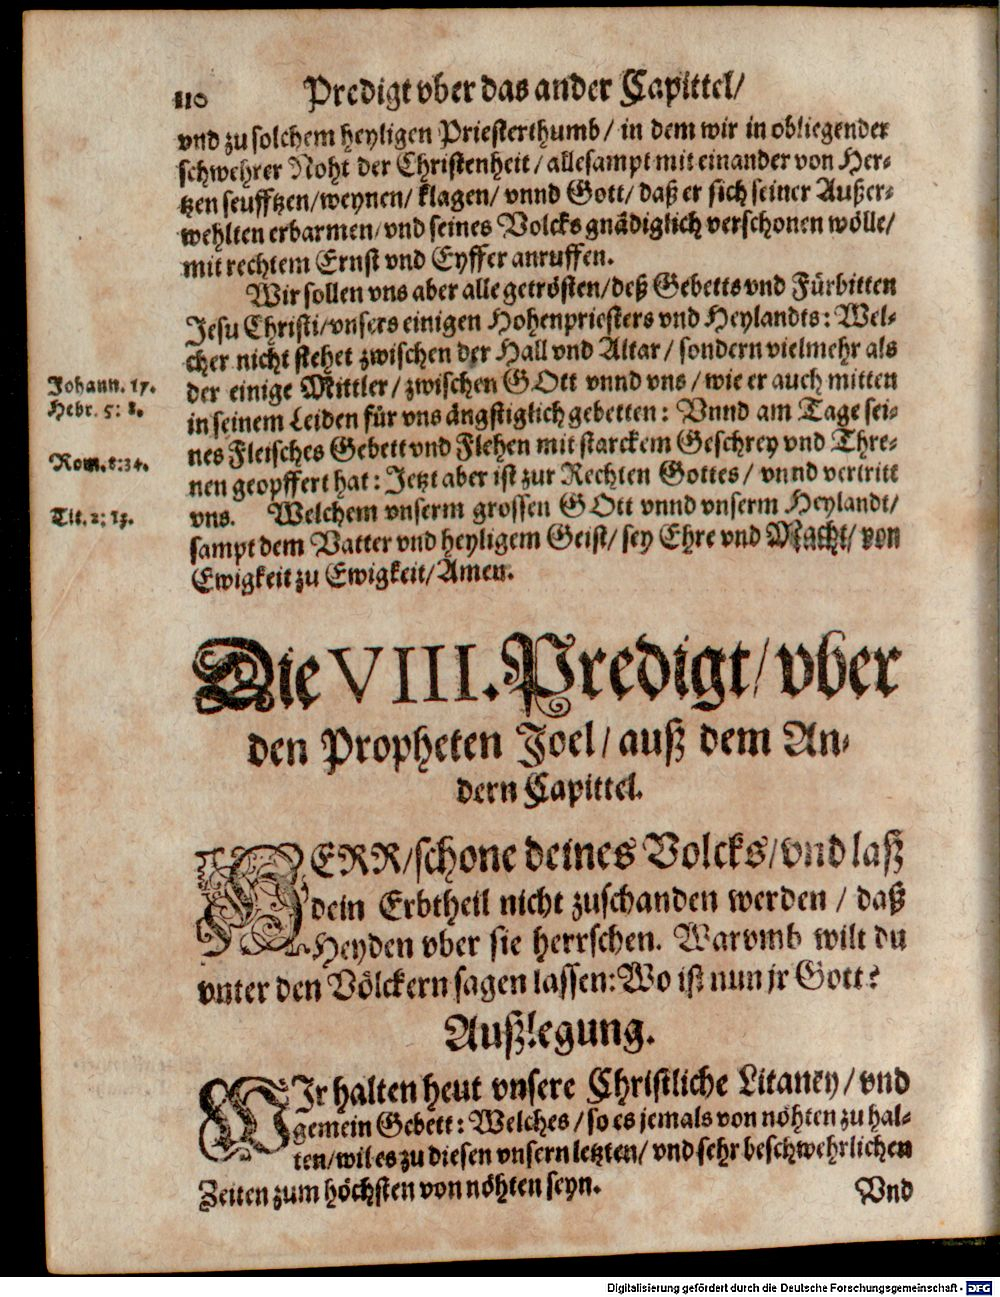 110 Predigt vber das ander Capittel/
vnd zu solchem heyligen Priesterthumb/ in dem wir in obliegender
schwehrer Noht der Christenheit/ allesampt mit einander von Her-
tzen seufftzen/weynen/ klagen/ vnnd Gott/ daß er sich seiner Außer-
wehlten erbarmen/vnd seines Volcks gnädiglich verschonen wölle/
mit rechtem Ernst vnd Eyffer anruffen.
Wir sollen vns aber alle getrösten/deß Gebetts vnd Fürbitten
Jesu Christi/vnsers einigen Hohenpriesters vnd Heylandts: Wel-
cher nicht stehet zwischen der Hall vnd Altar/ sondern vielmehr als
Johann. 17.
der einige Mittler/ zwischen GOtt vnnd vns/ wie er auch mitten
Hebr. 5: 8.
in seinem Leiden für vns ängstiglich gebetten: Vnnd am Tage sei-
nes Fleisches Gebett vnd Flehen mit starckem Geschrey vnd Thre-
Rom. 8:34.
nen geopffert hat: Jetzt aber ist zur Rechten Gottes/ vnnd vertritt
Tit. 2: 13.
vns. Welchem vnserm grossen GOtt vnnd vnserm Heylandt/
sampt dem Vatter vnd heyligem Geist/ sey Ehre vnd Macht/ von
Ewigkeit zu Ewigkeit/Amen.
Die VIII. Predigt/ vber
den Propheten Joel/ auß dem An-
dern Capittel.
HERR/schone deines Volcks/vnd laß
dein Erbtheil nicht zuschanden werden/ daß
Heyden vber sie herrschen. Warvmb wilt du
vnter den Völckern sagen lassen: Wo ist nun jr Gott?
Außlegung.
WIr halten heut vnsere Christliche Litaney/ vnd
gemein Gebett: Welches/ so es jemals von nöhten zu hal-
ten/wil es zu diesen vnsern letzten/ vnd sehr beschwehrlichen
Zeiten zum höchsten von nöhten seyn.
Vnd
Digitalisierung gefördert durch die Deutsche Forschungsgemeinschaft - DFG